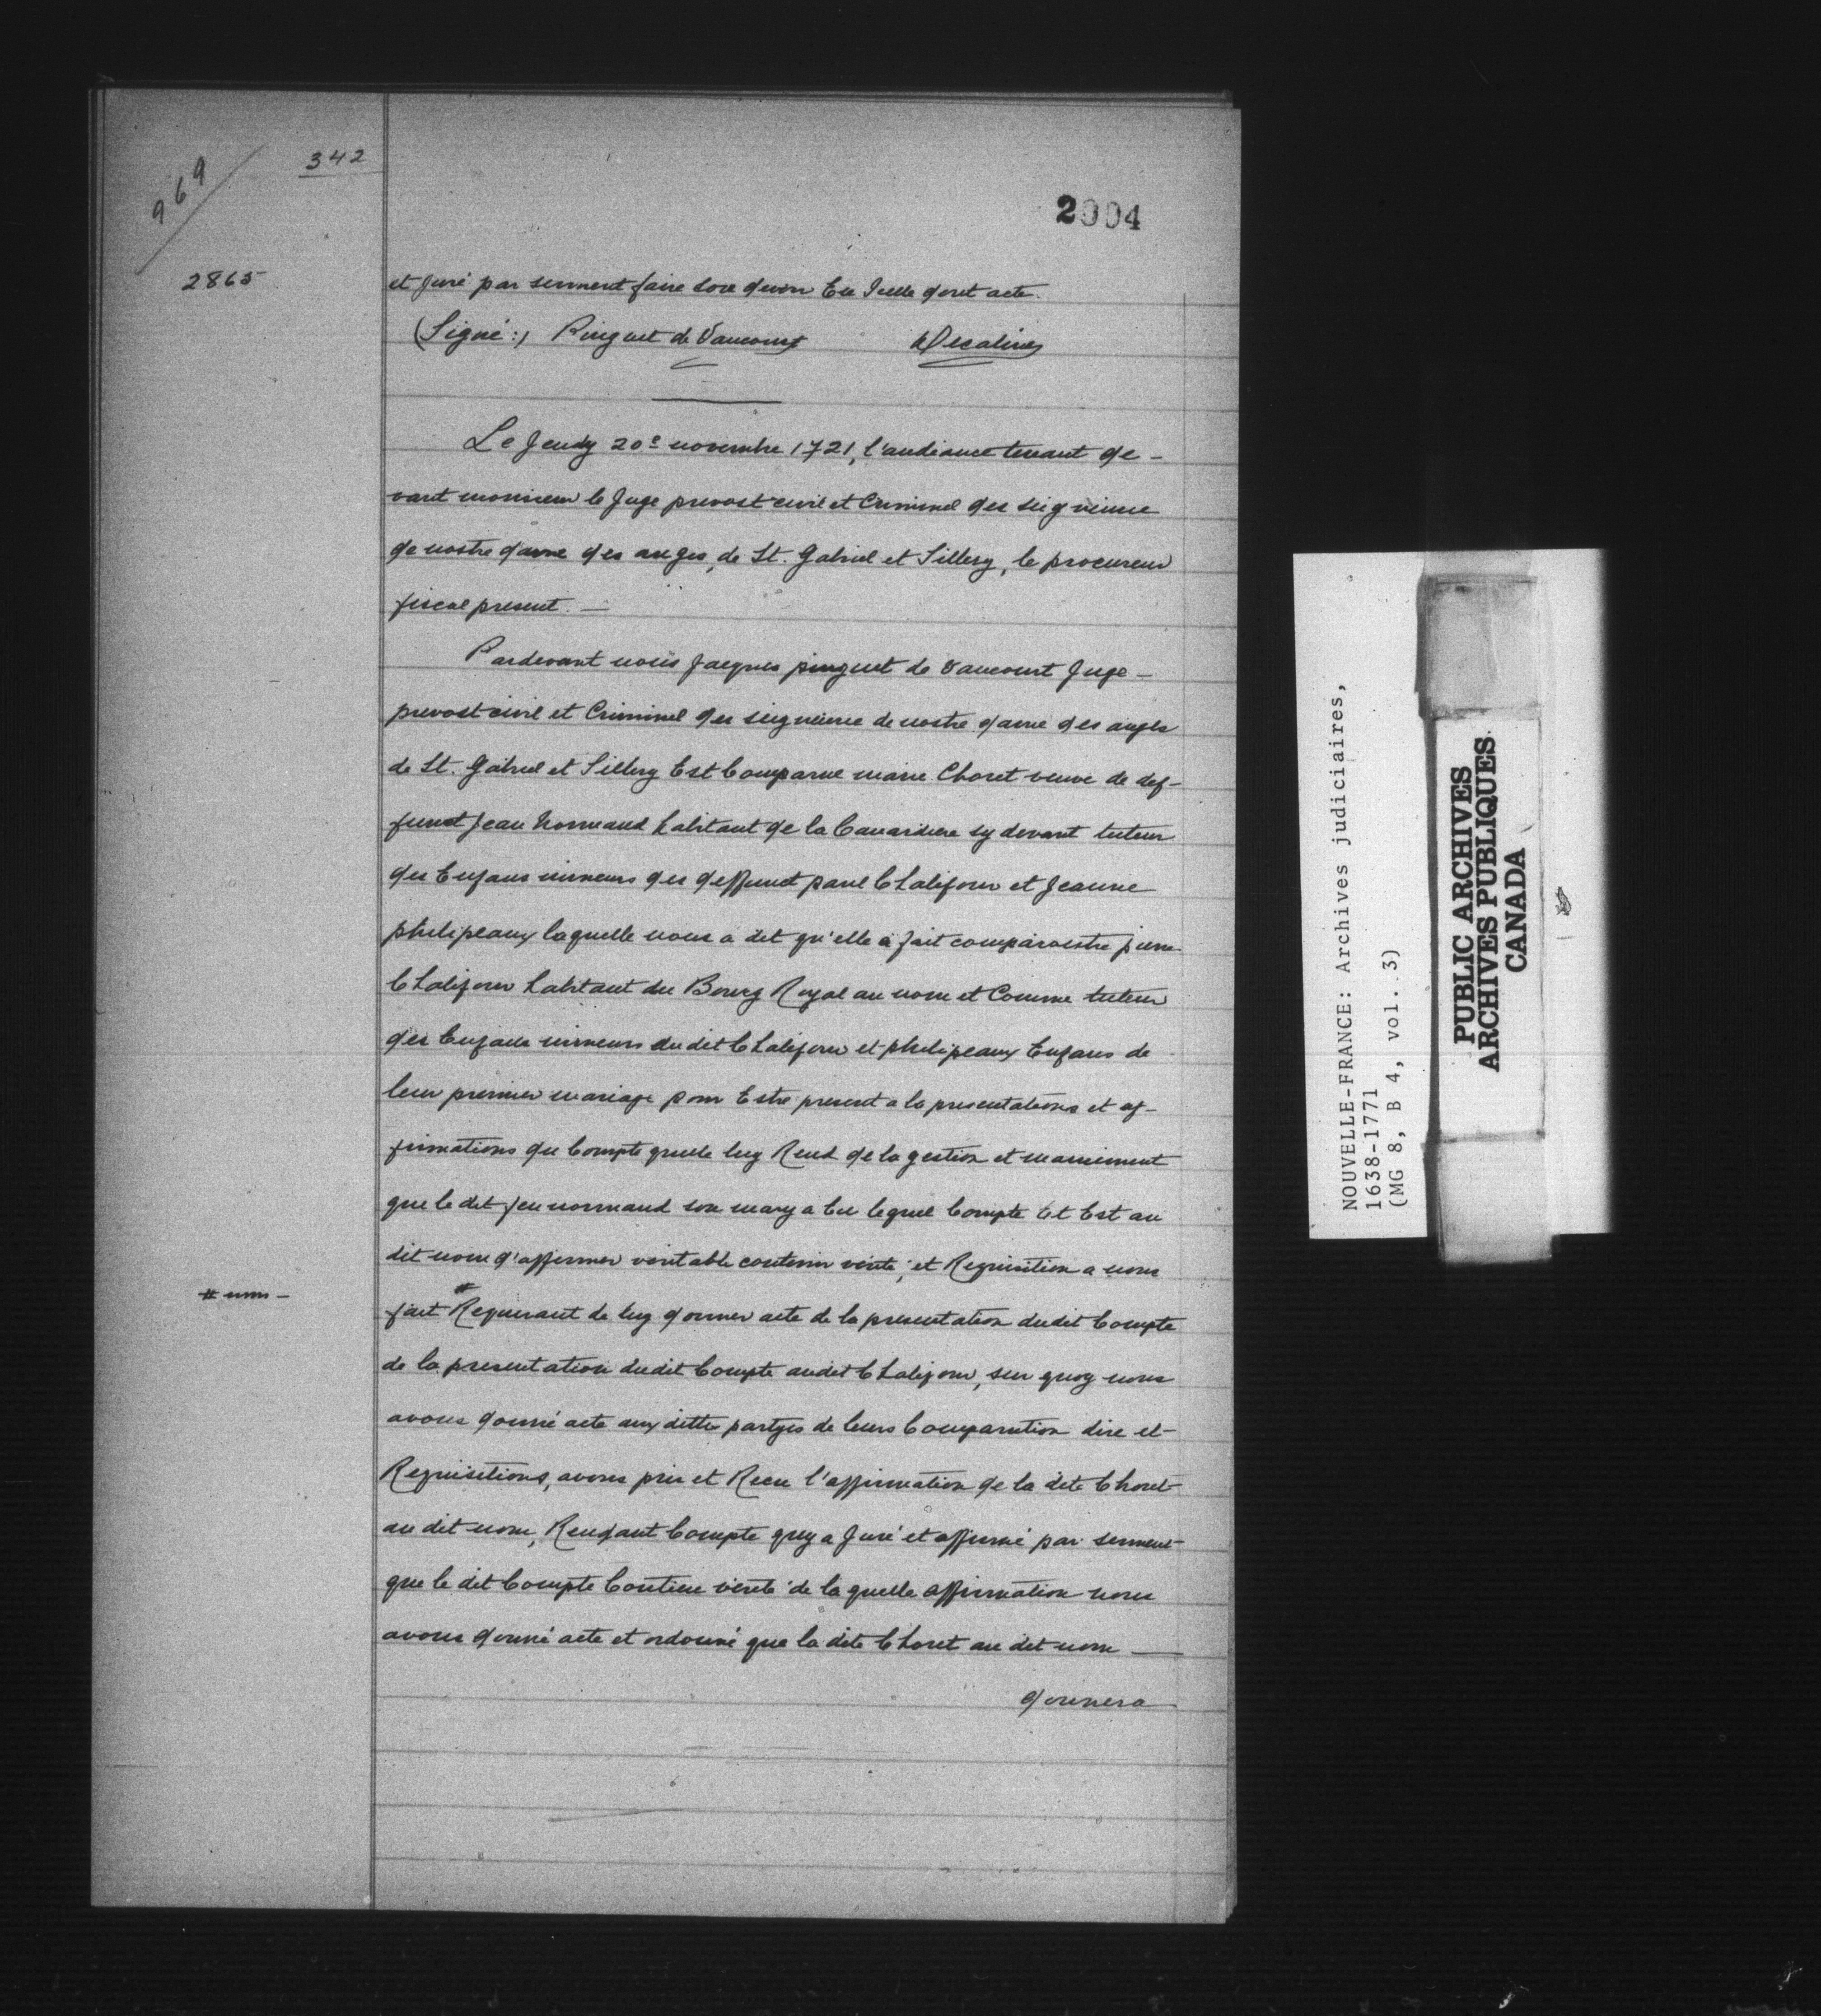 969
342
2004
2865
et Juré par serment faire son devoir En Icelle dont acte.
(Signé:) Pinguet de Vaucourt
Le Jeudy 20e novembre 1721, l'audiance tenant de-
vant monsieur le Juge prevost civil et Criminel des seigneurie
de nostre dame des anges, de St. Gabriel et Sillery, le procureur
fiscal present. —
Pardevant nous Jacques pinguet de Vaucourt Juge-
prevost civil et Criminel des seigneurie de nostre dame des anges
de St. Gabriel et Sillery Est Comparue marie Choret veuve de def-
funct Jean Normand habitant de la Canardiere sy devant tuteur
des Enfans mineurs des deffunct paul Chalifour et Jeanne
philipeaux laquelle nous a dit qu'elle a fait comparoistre pierre
Chalifour habitant du Bourg Royal au nom et Comme tuteur
des Enfans mineurs du dit Chalifour et philipeaux Enfans de
leur premier mariage pour Estre present a la presentations et af-
firmations du Compte quelle luy Rend de la gestion et maniement
que le dit feu normand son mary a Eu lequel Compte Et Est au
dit nom d'affirmer veritable contenir verité, et Requisition a nous
# nous —
fait # Requerant de luy donner acte de la presentation dudit Compte
de la presentation dudit Compte audit Chalifour, sur quoy nous
avons donné acte aux dittes partyes de leurs Comparution dire et
Requisitions, avons pris et Recu l'affirmation de la dite Choret
au dit nom, Rendant Compte quy a Juré et affirmé par serment
que le dit Compte Contien verité de la quelle affirmation nous
avons donné acte et ordonné que la dite Choret au dit nom —
donnera
NOUVELLE-FRANCE: Archives judiciaires,
1638-1771
(MG 8, B 4, vol. 3)
PUBLIC ARCHIVES
ARCHIVES PUBLIQUES
CANADA